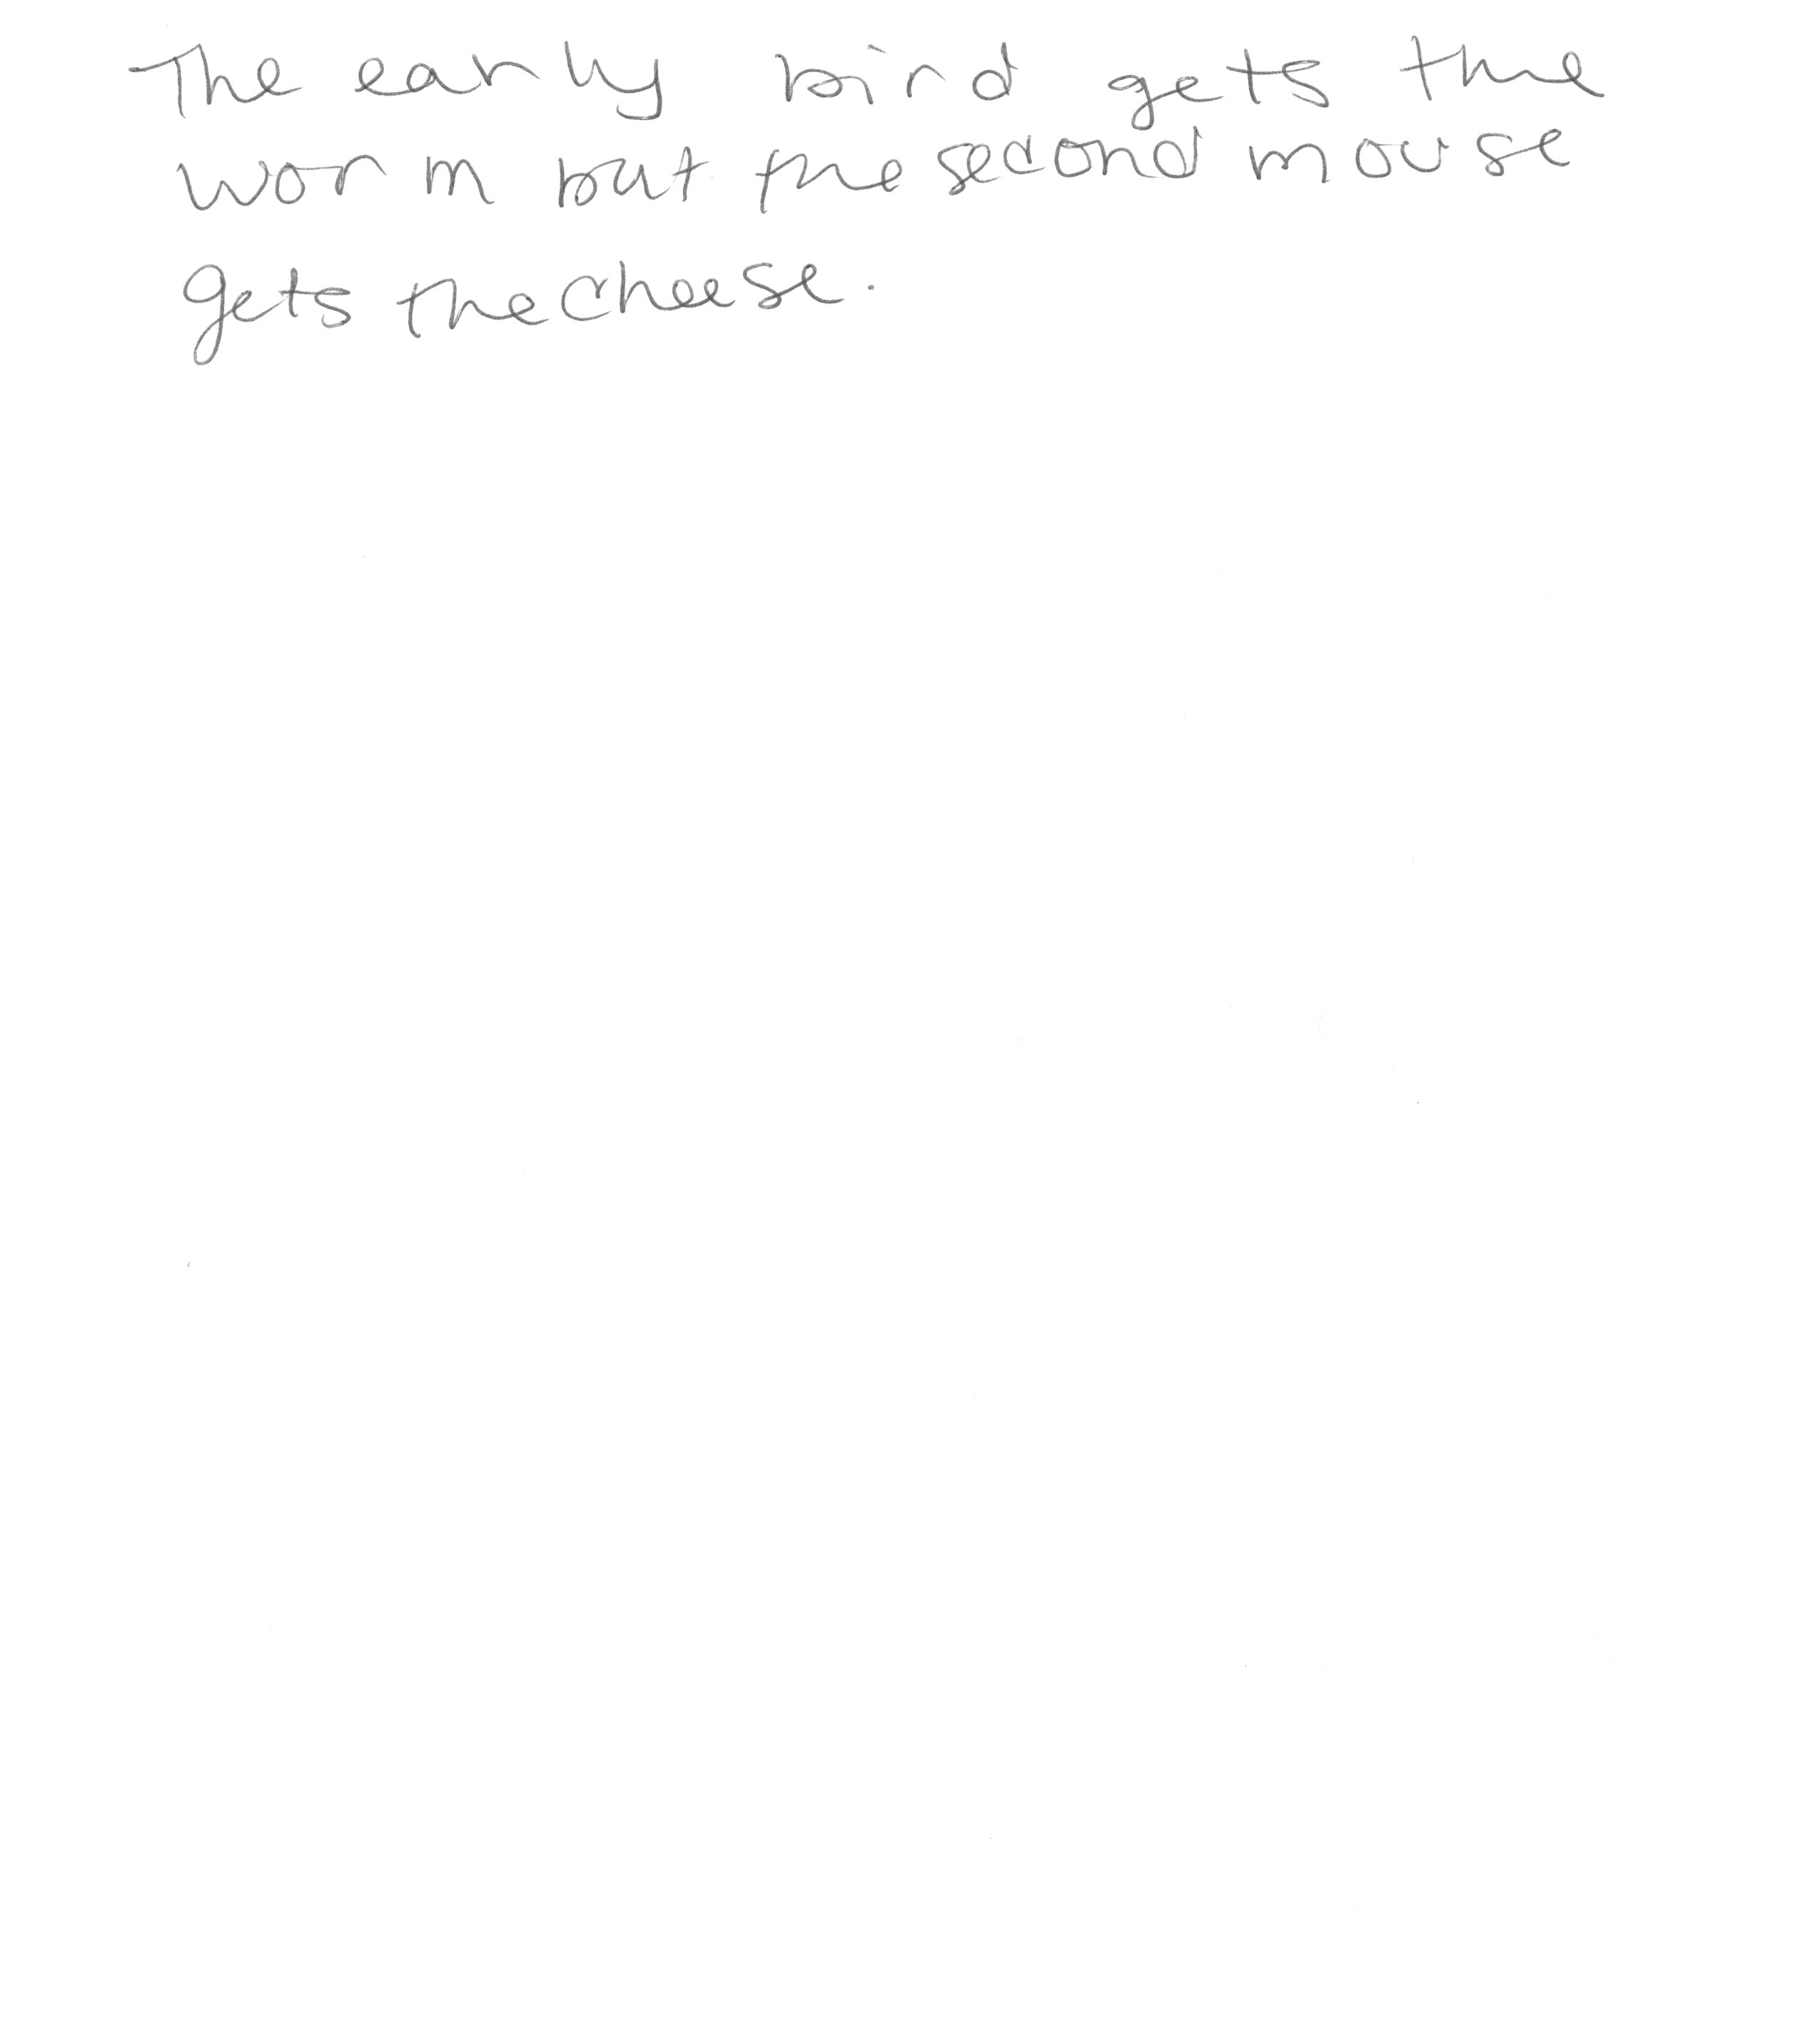 The early bird gets the
worm but the second mouse
gets the cheese.